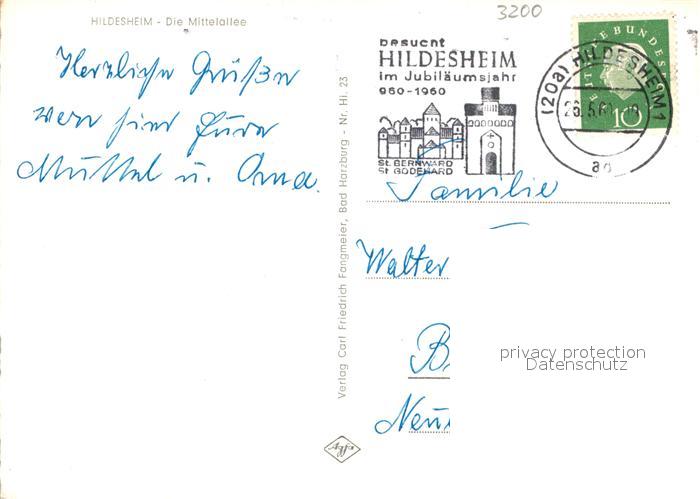 3200
HILDESHEIM - Die Mittelallee
besucht
HILDESHEIM
im Jubiläumsjahr
960-1960
St. BERNWARD
St. GODEHARD
(20a) HILDESHEIM 1
26.5.60
ad
DEUTSCHE BUNDESPOST
10
Herzliche Grüße
von hier Eure
Muttel u. Oma.
Familie
Walter
B
Neu
privacy protection
Datenschutz
Verlag Carl Friedrich Fangmeier, Bad Harzburg - Nr. Hi. 23
Agfa